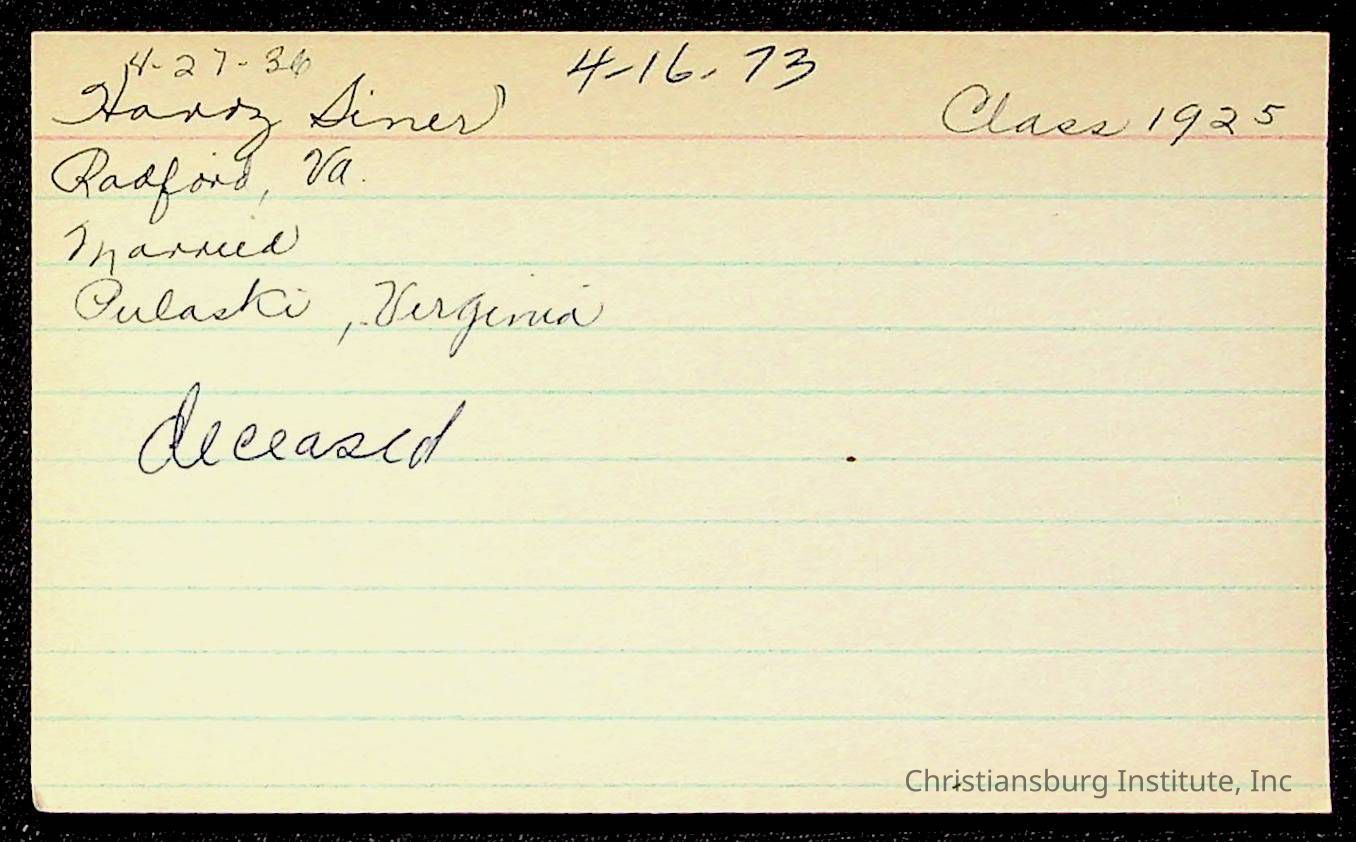 4-27-36
4-16-73
Harry Siner
Class 1925
Radford, Va.
Married
Pulaski, Virginia
deceased
Christiansburg Institute, Inc